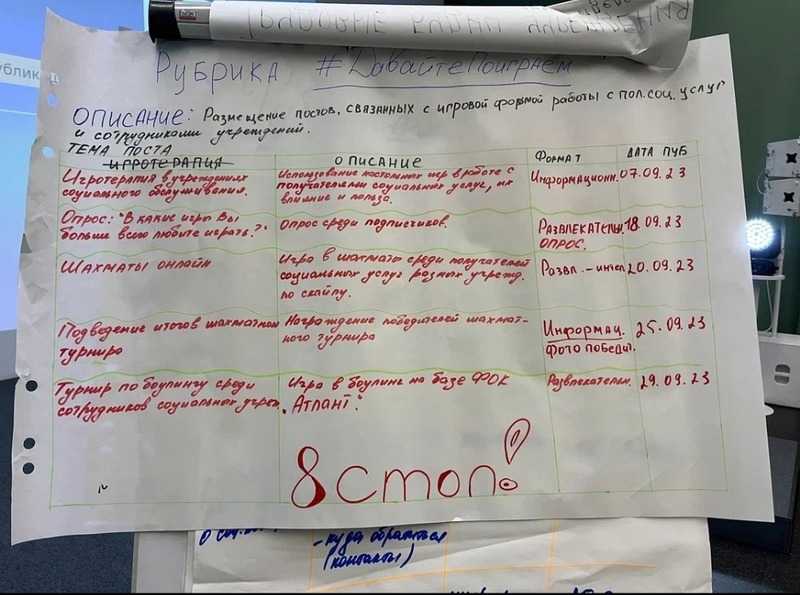 РУБРИКА #ДавайтеПоиграем
ОПИСАНИЕ: Размещение постов, связанных с игровой формой работы с пол.соц.услуг
и сотрудниками учреждений.
ТЕМА ПОСТА
ИГРОТЕРАПИЯ
ОПИСАНИЕ
ФОРМАТ
ДАТА ПУБ
Игротерапия в учреждениях
социального обслуживания.
Использование настольных игр в работе с
получателями социальных услуг, их
влияние и польза.
Информационн.
07.09.23
Опрос: "В какие игры Вы
больше всего любите играть?"
Опрос среди подписчиков.
Развлекательн.
ОПРОС.
18.09.23
Шахматы онлайн
Игра в шахматы среди получателей
социальных услуг разных учрежд.
по скайпу.
Развл.
20.09.23
Подведение итогов шахматного
турнира
Награждение победителей шахмат-
ного турнира
Информац.
фото победит.
25.09.23
Турнир по боулингу среди
сотрудников социальных учрежд.
Игра в боулинг на базе ФОК
"Атлант".
Развлекательн.
29.09.23
8 стол!
- куда обратиться
(контакты)